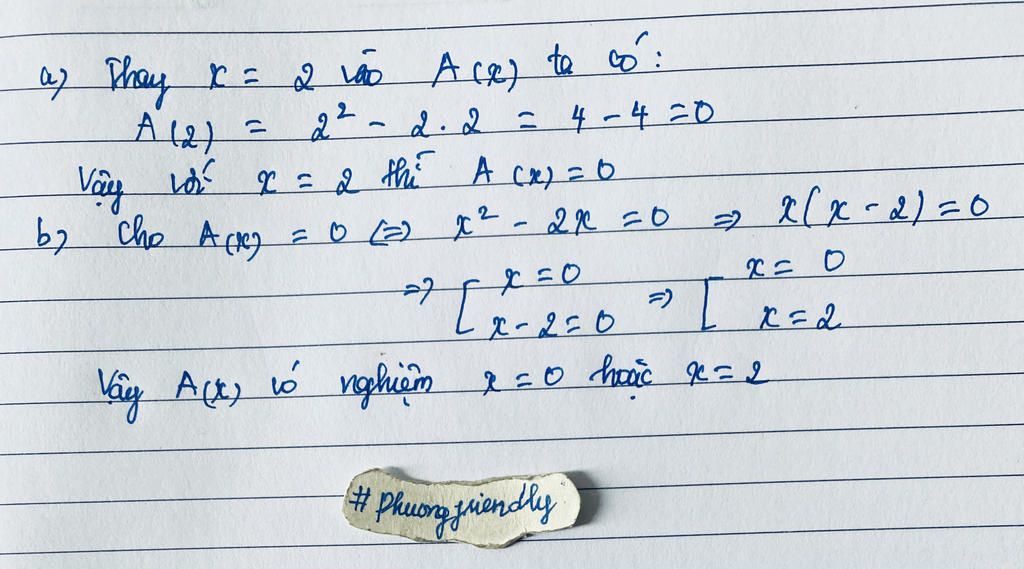 a) Thay x = 2 vào A(x) ta có:
A(2) = 2² - 2.2 = 4 - 4 = 0
Vậy với x = 2 thì A(x) = 0
b) Cho A(x) = 0 <=> x² - 2x = 0 => x(x - 2) = 0
=> [ x = 0 => [ x = 0
x - 2 = 0 x = 2
Vậy A(x) có nghiệm x = 0 hoặc x = 2
#phuongfriendly